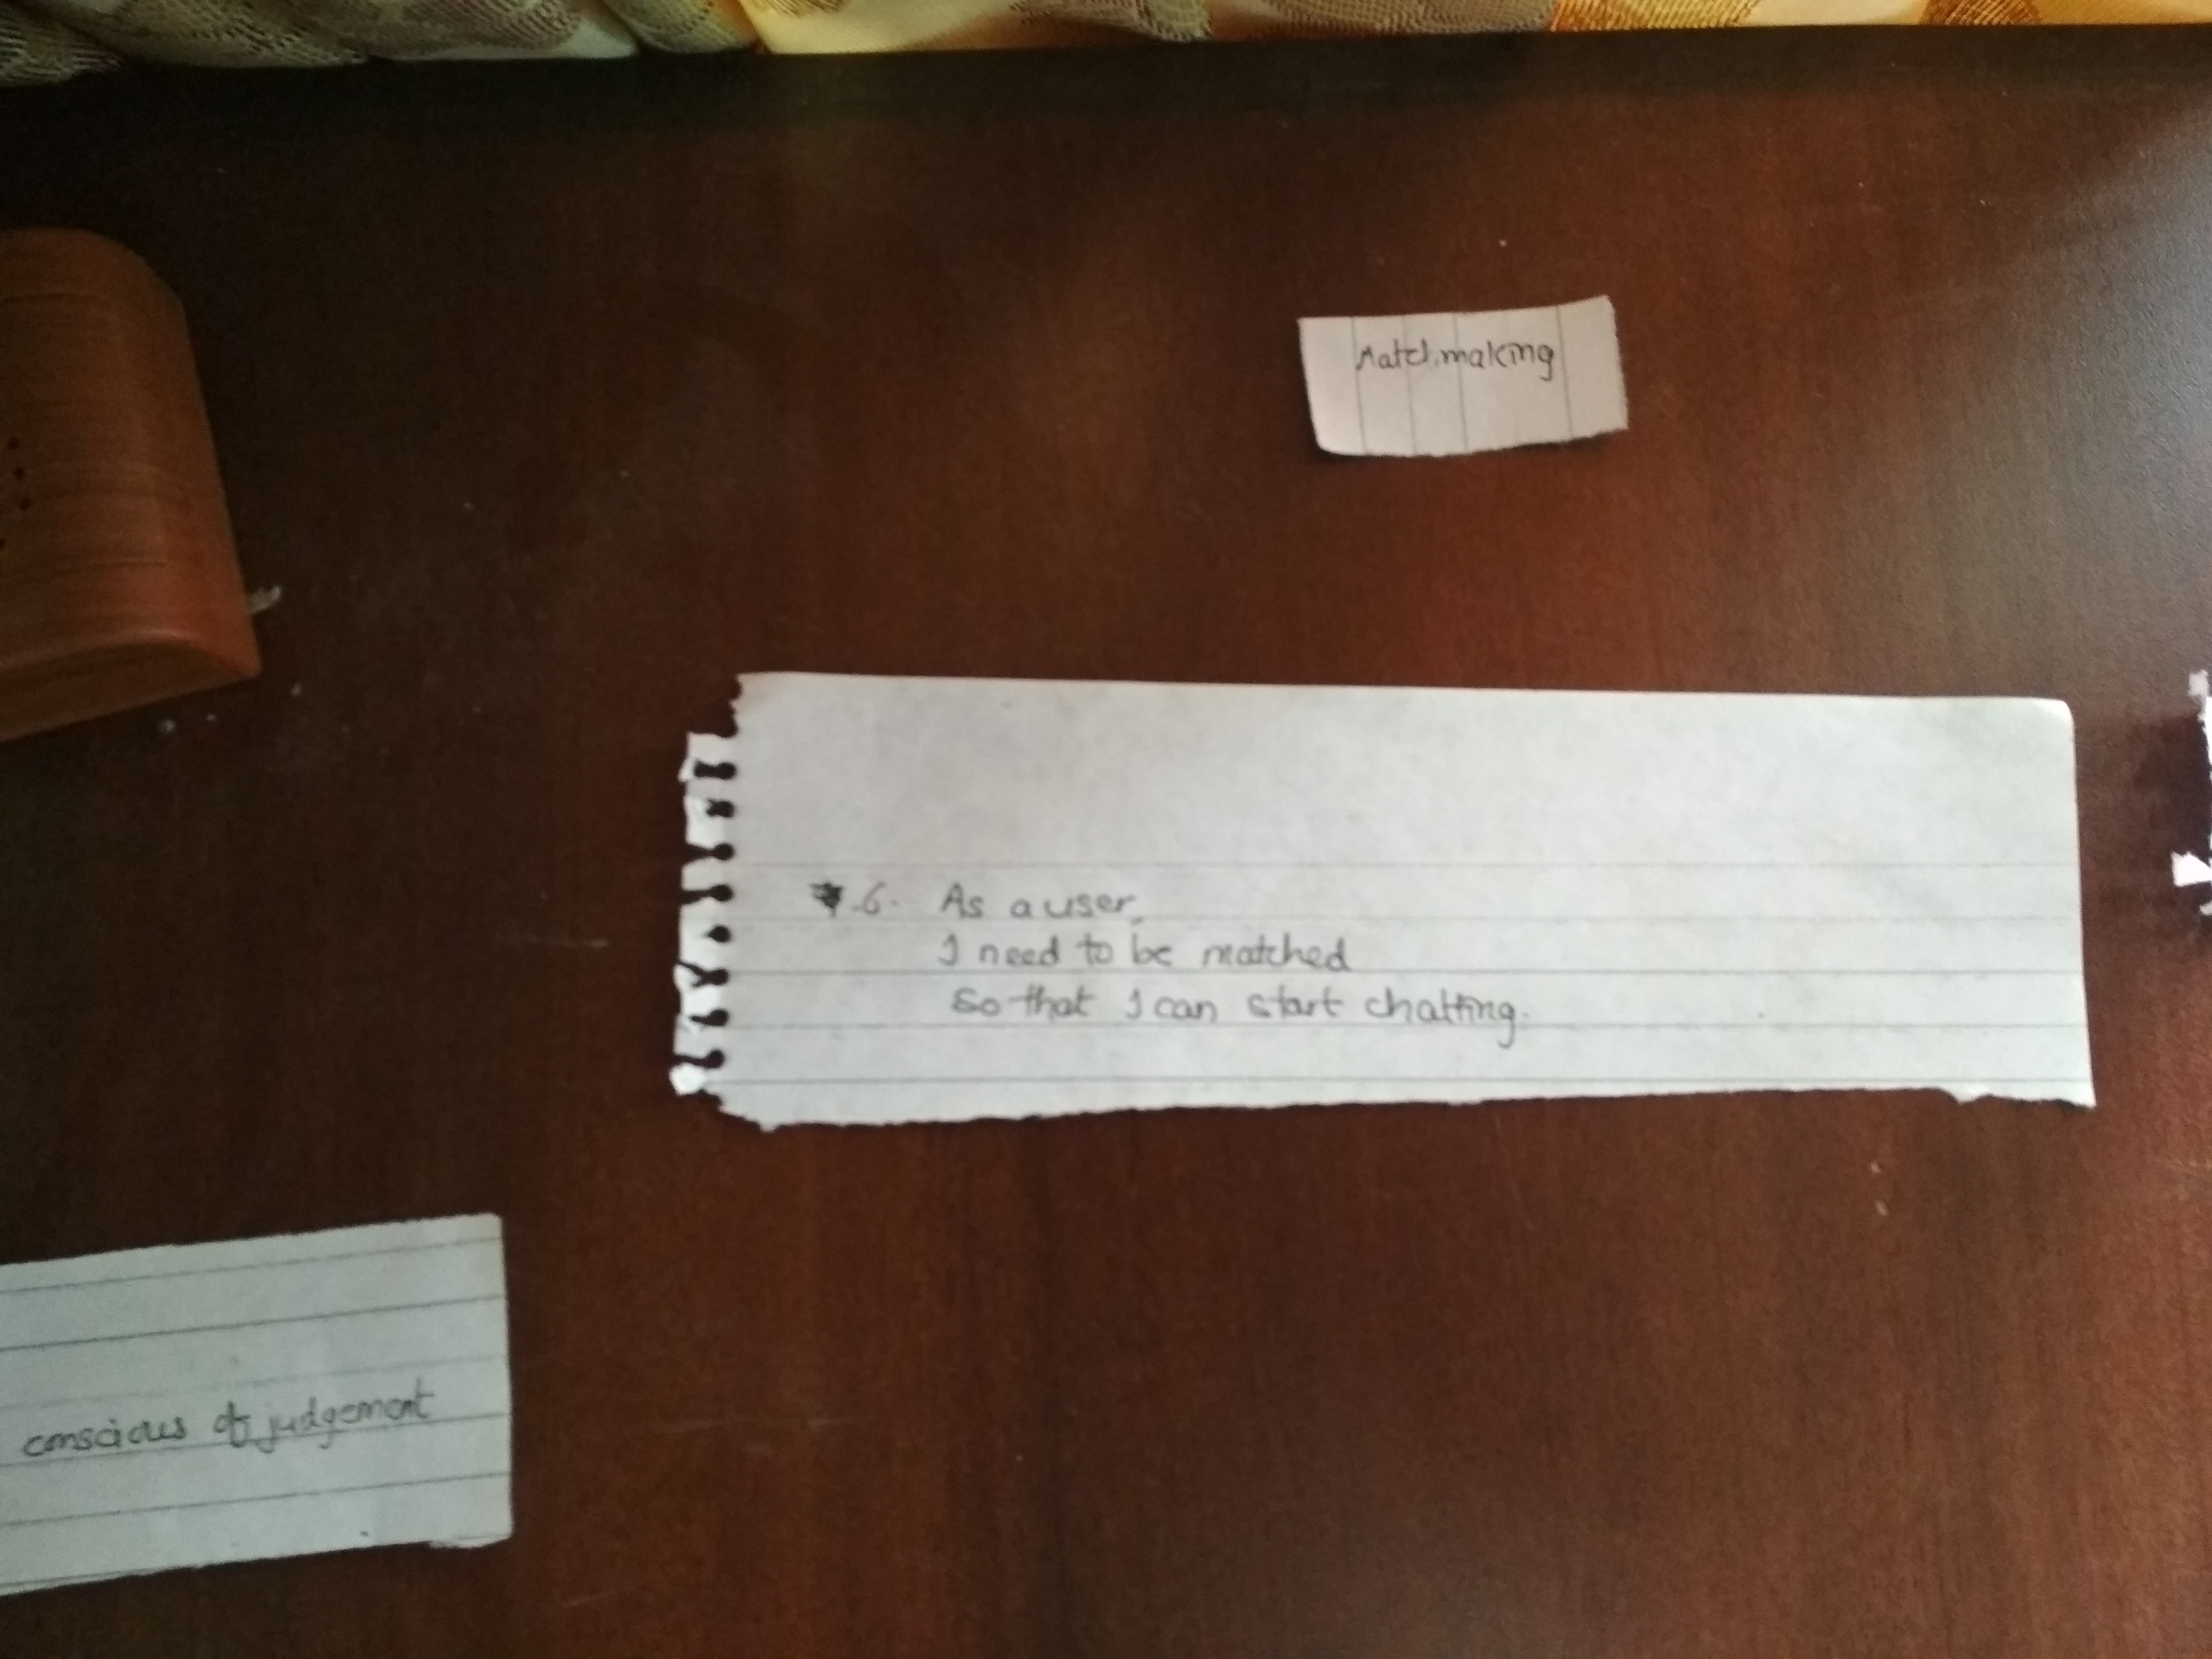 Matchmaking
6. As a user,
I need to be matched
so that I can start chatting.
conscious of judgement